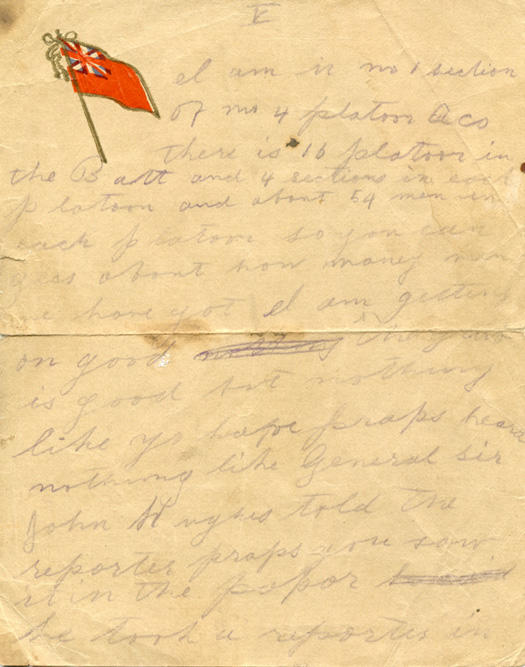 V
I am in no 1 section
of no 4 platoon Co
there is 16 platoon in
the Batt and 4 sections in each
platoon and about 54 men in
each platoon so you can
gess about how maney men
we have got I am getting
on good the
is good but nothing
like yo hafe praps heard
nothing like General Sir
John Hughes told the
reporter praps you saw
it in the papar
he took a reporter in